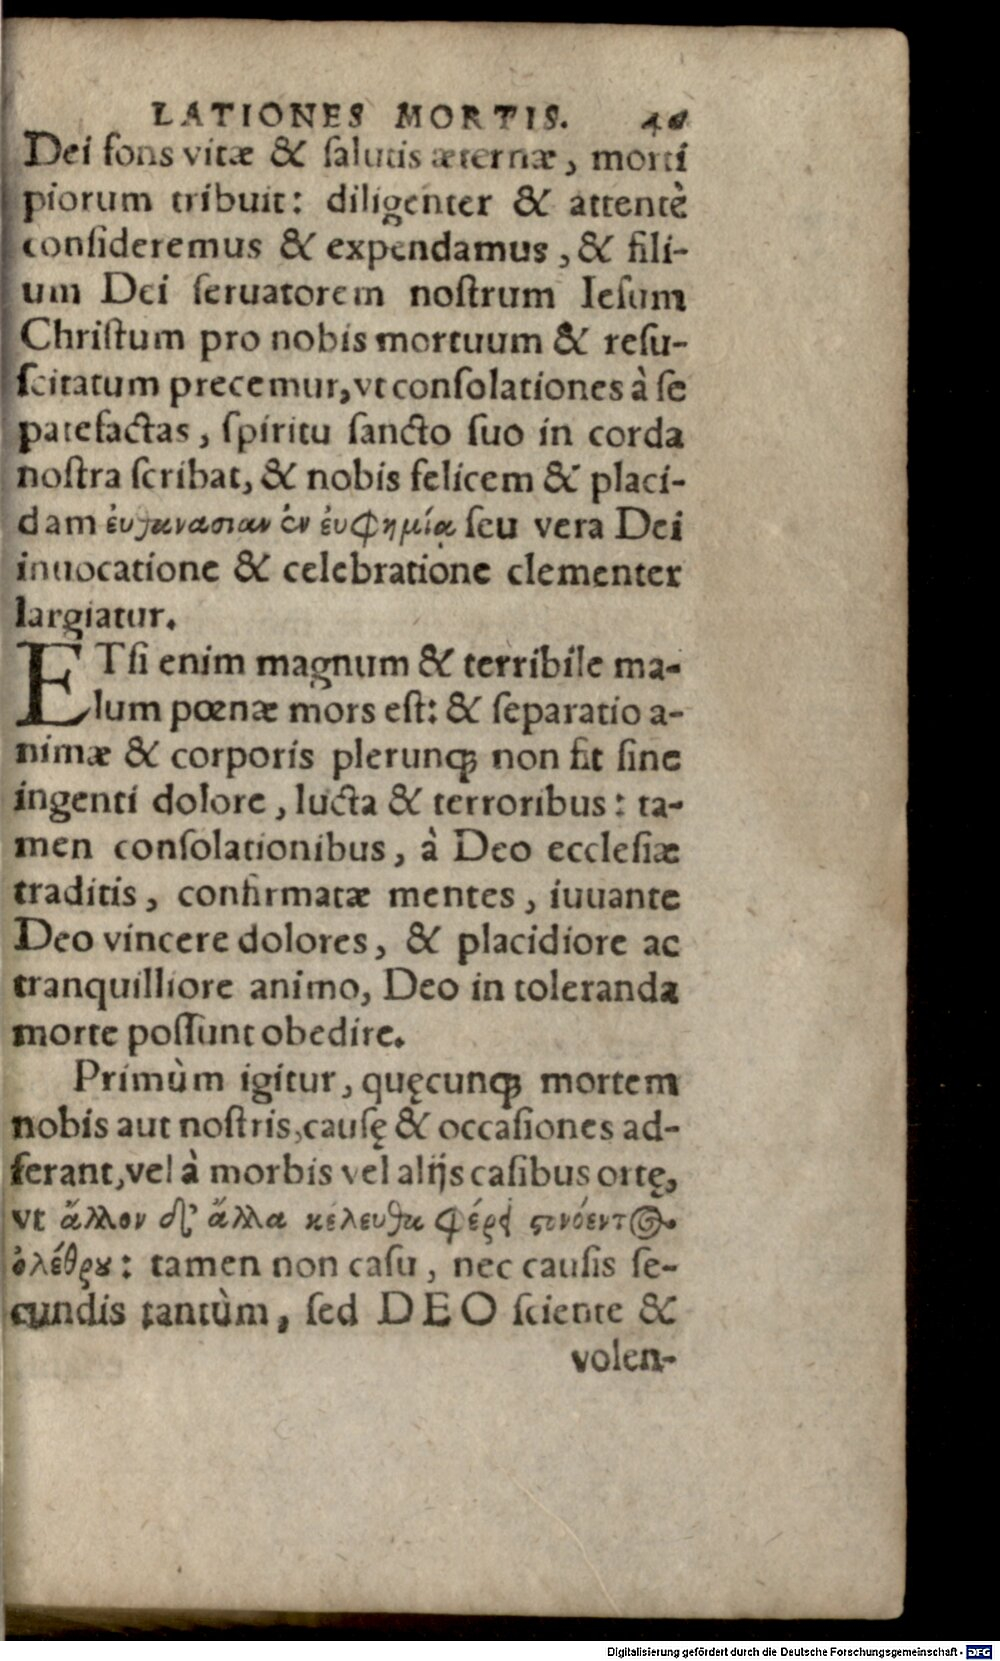 LATIONES MORTIS.
Dei fons vitæ & ſalutis æternæ, morti
piorum tribuit: diligenter & attentè
conſideremus & expendamus, & fili-
um Dei ſeruatorem noſtrum Ieſum
Chriſtum pro nobis mortuum & reſu-
ſcitatum precemur, vt conſolationes à ſe
patefactas, ſpiritu ſancto ſuo in corda
noſtra ſcribat, & nobis felicem & placi-
dam ἐυθανασιαν ἐν ἐυφημίᾳ ſeu vera Dei
inuocatione & celebratione clementer
largiatur.
ETſi enim magnum & terribile ma-
lum pœnæ mors eſt: & ſeparatio a-
nimæ & corporis plerunq; non fit ſine
ingenti dolore, lucta & terroribus: ta-
men conſolationibus, à Deo eccleſiæ
traditis, confirmatæ mentes, iuuante
Deo vincere dolores, & placidiore ac
tranquilliore animo, Deo in toleranda
morte poſſunt obedire.
Primùm igitur, quęcunq; mortem
nobis aut noſtris, cauſę & occaſiones ad-
ferant, vel à morbis vel alijs caſibus ortę,
vt ἄλλον δι' ἄλλα κέλευθα φέρει
ὀλέθρου: tamen non caſu, nec cauſis ſe-
cundis tantùm, ſed DEO ſciente &
volen-
Digitalisierung gefördert durch die Deutsche Forschungsgemeinschaft - DFG